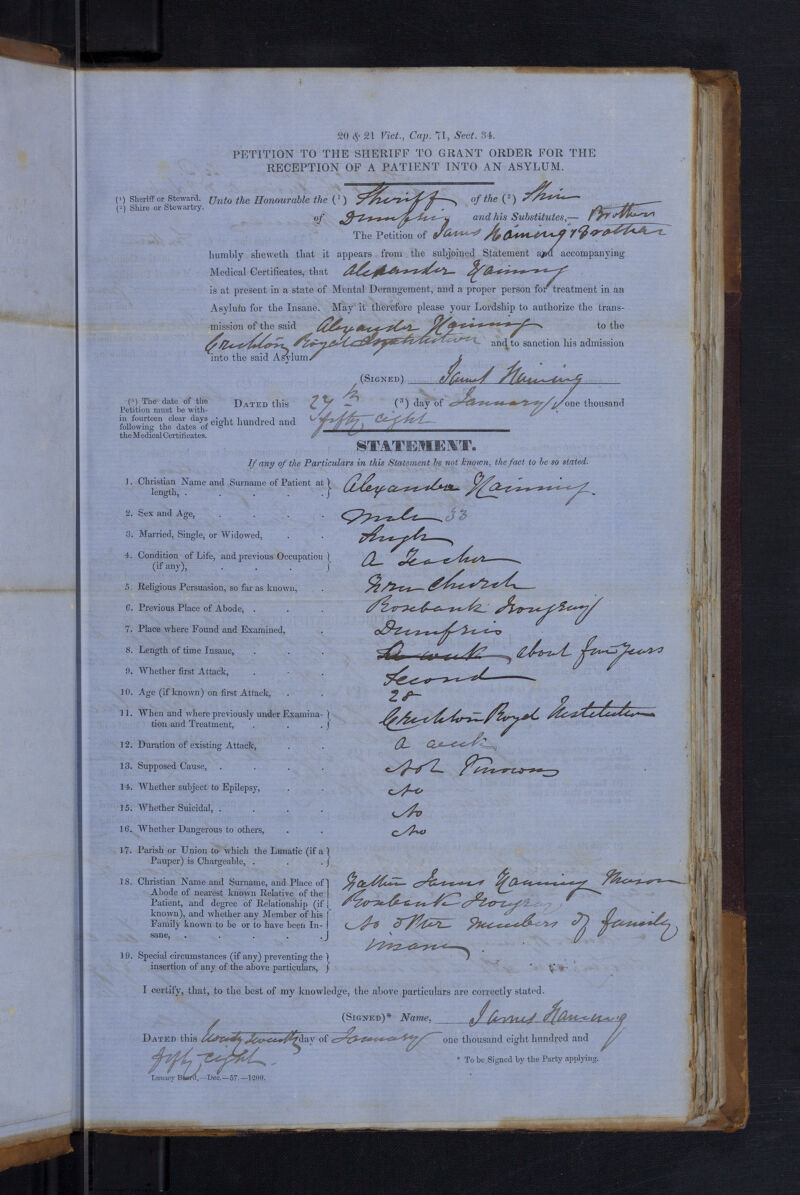 20 & 21 Vict., Cap. 71, Sect. 34.
PETITION TO THE SHERIFF TO GRANT ORDER FOR THE
RECEPTION OF A PATIENT INTO AN ASYLUM.
(¹) Sheriff or Steward.
(²) Shire or Stewartry.
Unto the Honourable the (¹) Sheriff of the (²) Shire
of Dumfries and his Substitutes,— Brother
The Petition of James Haining Brother
humbly sheweth that it appears from the subjoined Statement and accompanying
Medical Certificates, that Alexander Haining
is at present in a state of Mental Derangement, and a proper person for treatment in an
Asylum for the Insane. May it therefore please your Lordship to authorize the trans-
mission of the said Alexander Haining to the
Crichton Royal Institution and to sanction his admission
into the said Asylum
(SIGNED) James Haining
(³) The date of the
Petition must be with-
in fourteen clear days
following the dates of
the Medical Certificates.
DATED this 27th (³) day of January, one thousand
eight hundred and fifty eight
STATEMENT.
If any of the Particulars in this Statement be not known, the fact to be so stated.
1. Christian Name and Surname of Patient at
length, . Alexander Haining.
2. Sex and Age, Male 33
3. Married, Single, or Widowed, Single
4. Condition of Life, and previous Occupation
(if any), A Teacher
5. Religious Persuasion, so far as known, Free Church
6. Previous Place of Abode, . Rosebank Irongray
7. Place where Found and Examined, Dumfries
8. Length of time Insane, A week about five years
9. Whether first Attack, Second
10. Age (if known) on first Attack, 28
11. When and where previously under Examina-
tion and Treatment, Crichton Royal Institution
12. Duration of existing Attack, a week
13. Supposed Cause, Not Known
14. Whether subject to Epilepsy, No
15. Whether Suicidal, . No
16. Whether Dangerous to others, No
17. Parish or Union to which the Lunatic (if a
Pauper) is Chargeable, .
18. Christian Name and Surname, and Place of
Abode of nearest known Relative of the
Patient, and degree of Relationship (if
known), and whether any Member of his
Family known to be or to have been In-
sane, .
Father James Haining Mason
Rosebank Irongray
No other members of family
insane
19. Special circumstances (if any) preventing the
insertion of any of the above particulars,
I certify, that, to the best of my knowledge, the above particulars are correctly stated.
(SIGNED)* Name, James Haining
DATED this twenty seventh day of January one thousand eight hundred and
fifty eight.
* To be Signed by the Party applying.
Lunacy Board,—Dec.—57.—1200.